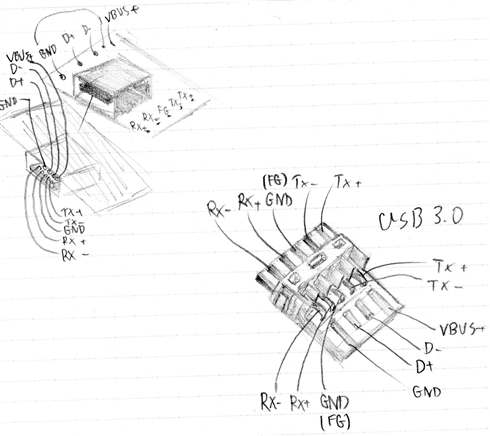 VBUS+
D-
D+
GND
VBUS+
D-
D+
GND
RX+
RX-
FG
TX+
TX-
TX+
TX-
GND
RX+
RX-
USB 3.0
RX-
RX+
(FG)
GND
TX-
TX+
TX+
TX-
VBUS+
D-
D+
GND
RX-
RX+
GND
(FG)